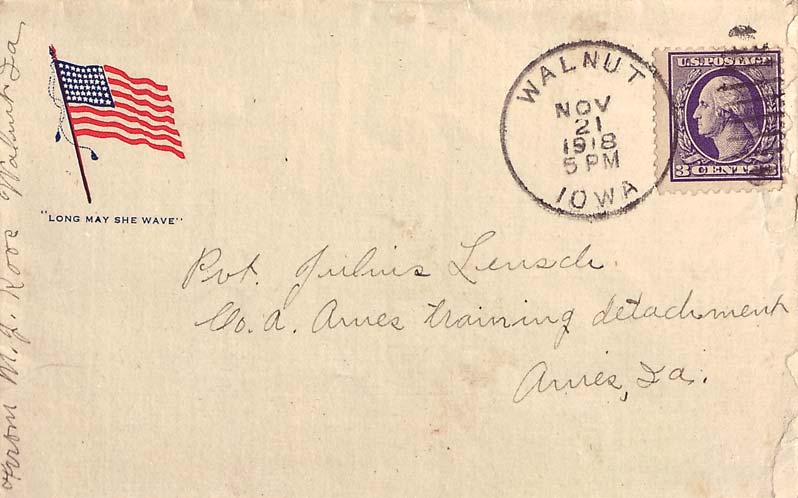 From M.J. Koos Walnut Ia
"LONG MAY SHE WAVE"
WALNUT
NOV
21
1918
5 PM
IOWA
U.S. POSTAGE
3 CENTS 3
Pvt. Julius Lensch.
Co. A. Ames training detachment
Ames, Ia.